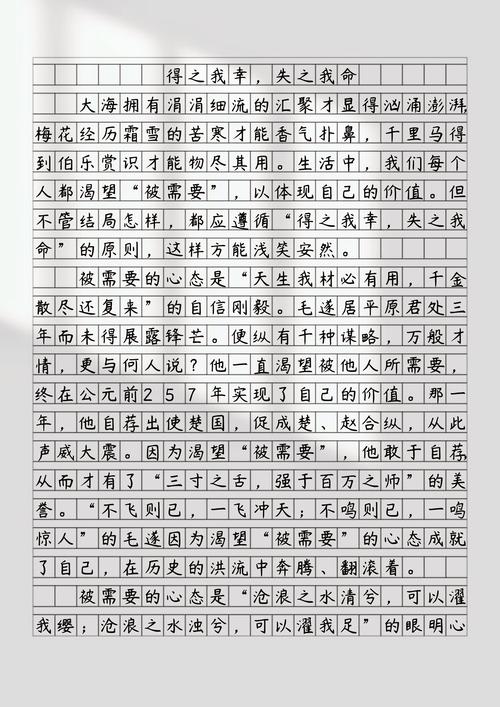 得之我幸，失之我命
大海拥有涓涓细流的汇聚才显得汹涌澎湃，
梅花经历霜雪的苦寒才能香气扑鼻，千里马得
到伯乐赏识才能物尽其用。生活中，我们每个
人都渴望“被需要”，以体现自己的价值。但
不管结局怎样，都应遵循“得之我幸，失之我
命”的原则，这样方能浅笑安然。
被需要的心态是“天生我材必有用，千金
散尽还复来”的自信刚毅。毛遂居平原君处三
年而未得展露锋芒。便纵有千种谋略，万般才
情，更与何人说？他一直渴望被他人所需要，
终在公元前257年实现了自己的价值。那一
年，他自荐出使楚国，促成楚、赵合纵，从此
声威大震。因为渴望“被需要”，他敢于自荐，
从而才有了“三寸之舌，强于百万之师”的美
誉。“不飞则已，一飞冲天；不鸣则已，一鸣
惊人”的毛遂因为渴望“被需要”的心态成就
了自己，在历史的洪流中奔腾、翻滚着。
被需要的心态是“沧浪之水清兮，可以濯
我缨；沧浪之水浊兮，可以濯我足”的眼明心